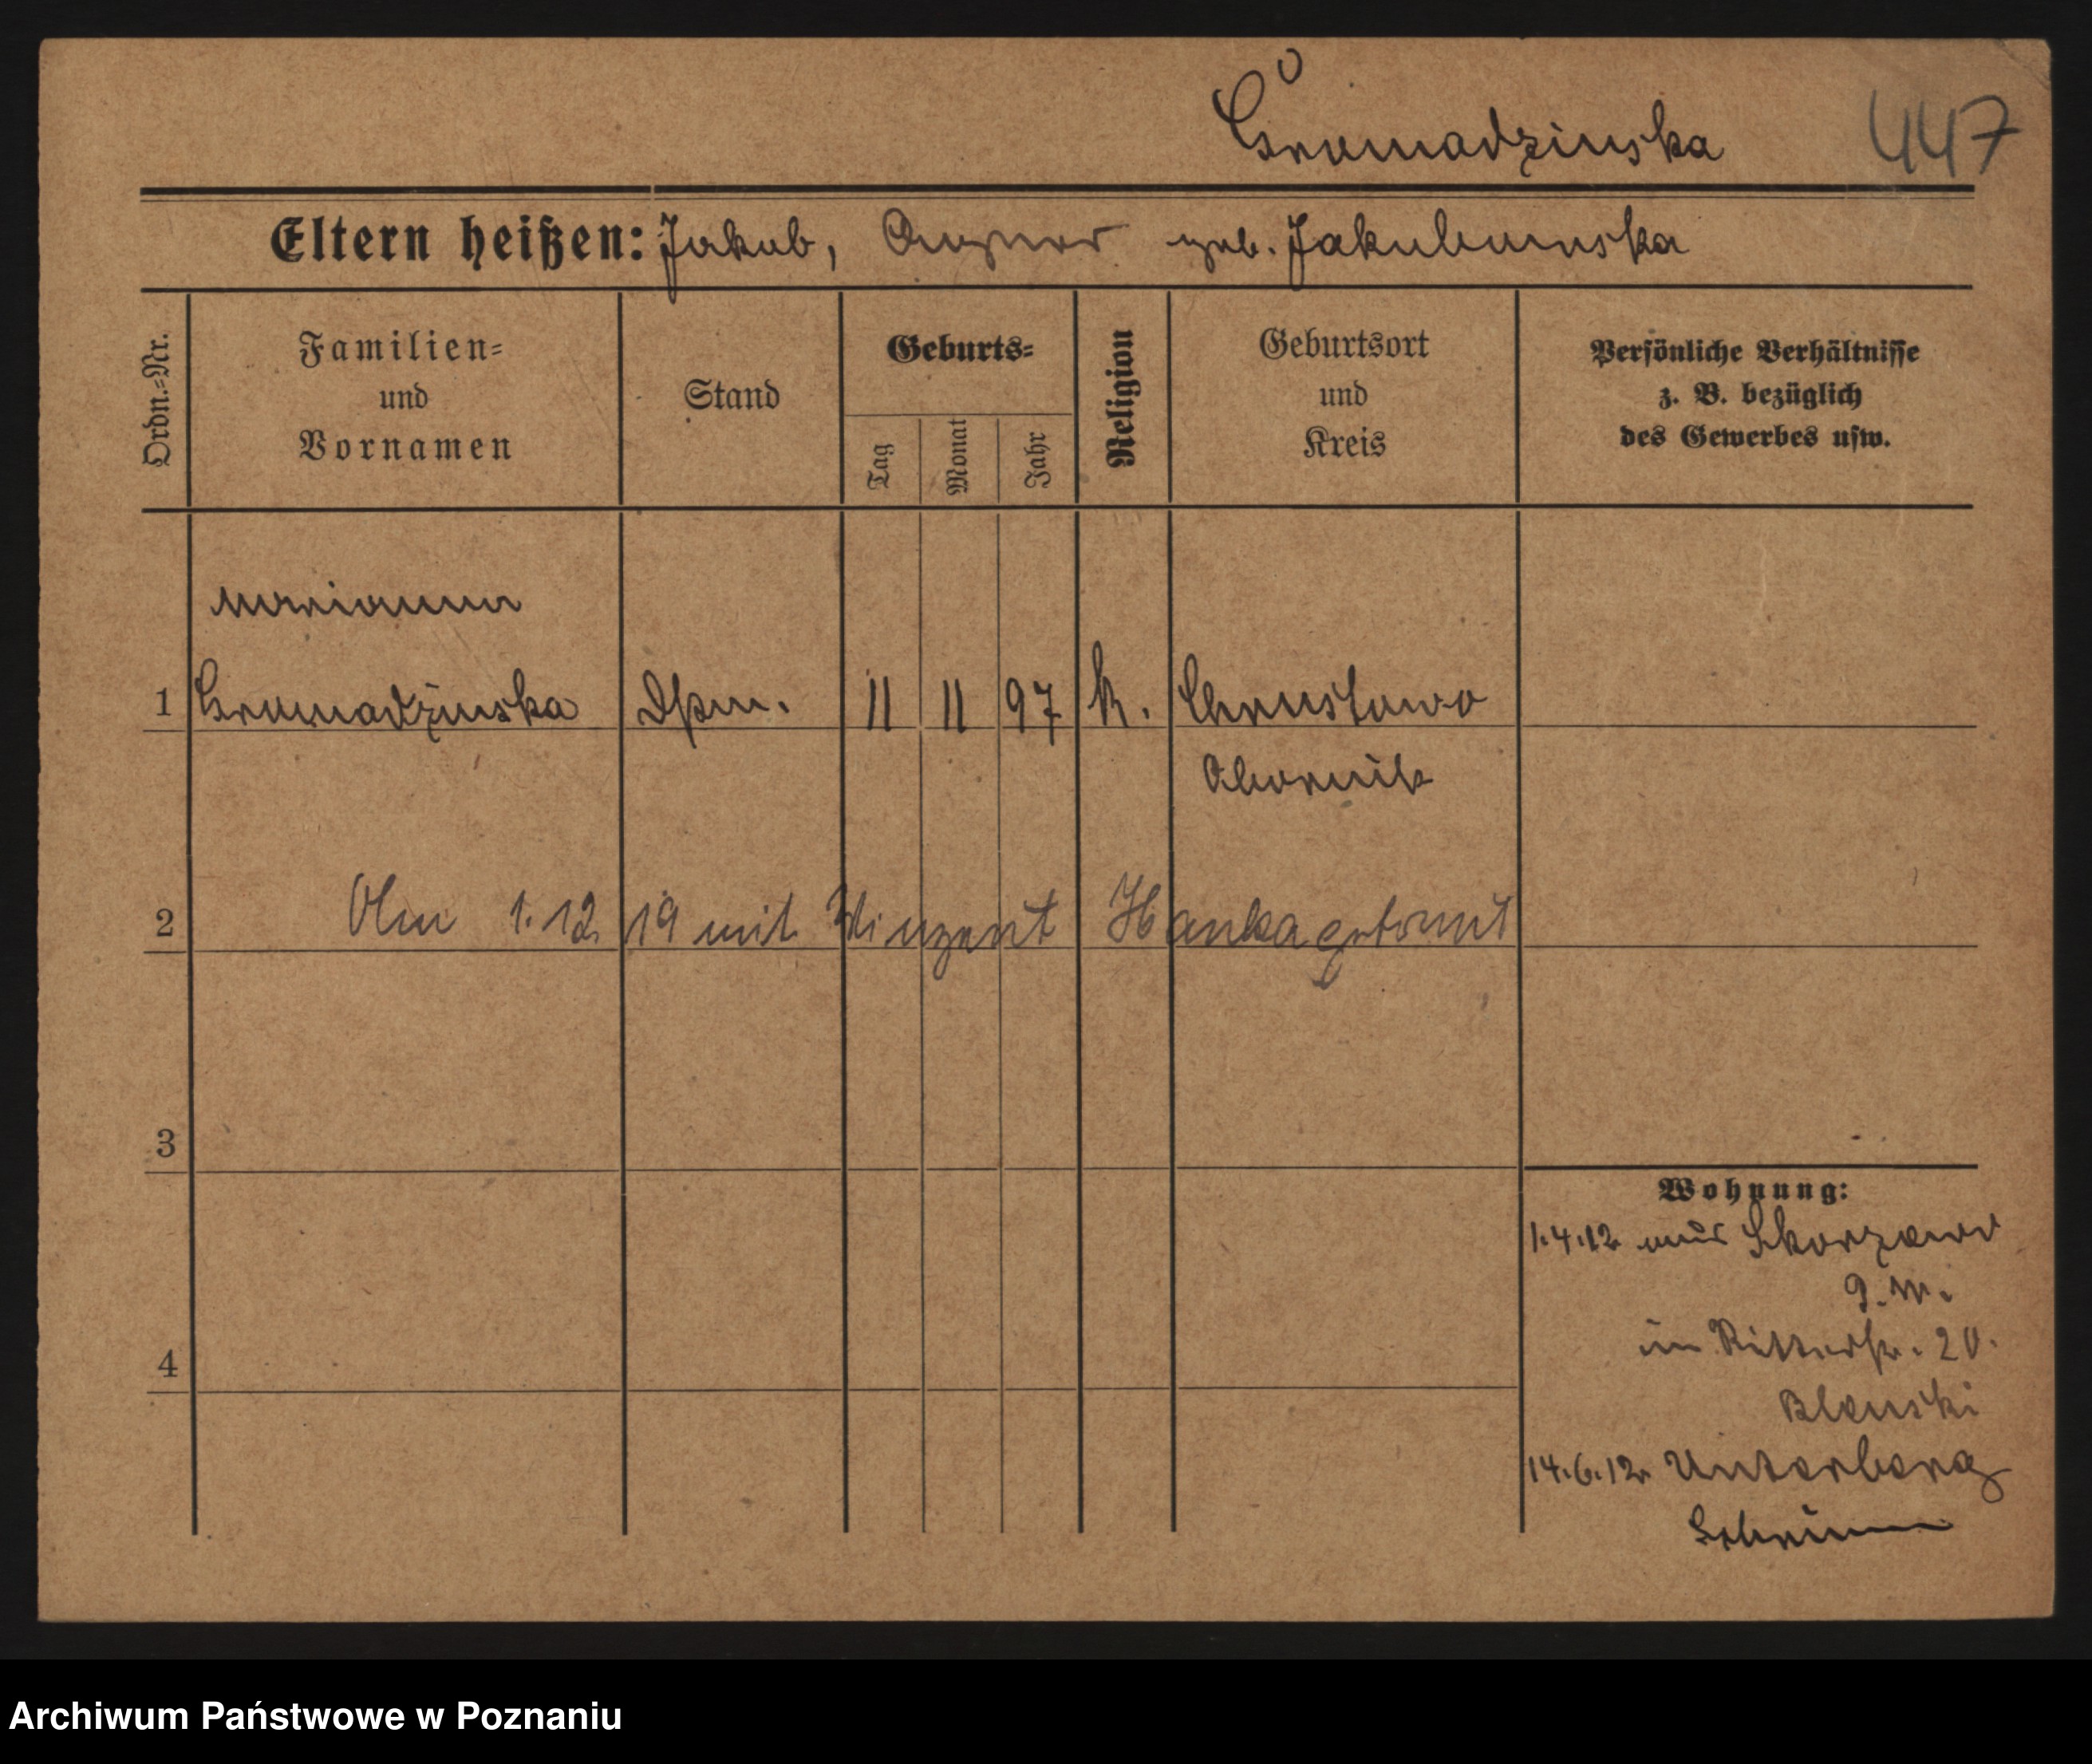 Gromadzinska 447
Eltern heißen: Jakob, geb. Jakubowska
Ordn.=Nr.
Familien=
und
Vornamen
Stand
Geburts=
Tag
Monat
Jahr
Religion
Geburtsort
und
Kreis
Persönliche Verhältnisse
z. B. bezüglich
des Gewerbes usw.
Marianna
1 Gromadzinska Dstm. 11 11 97 k. Chrustowo
Obornik
2 Am 1.12. 19 mit Vinzent Hanka getraut
3
4
Wohnung:
1.4.12 aus Skorzewo
P. W.
in Ritterstr. 20.
Blenski
14.6.12. Unterberg
Schrimm
Archiwum Państwowe w Poznaniu